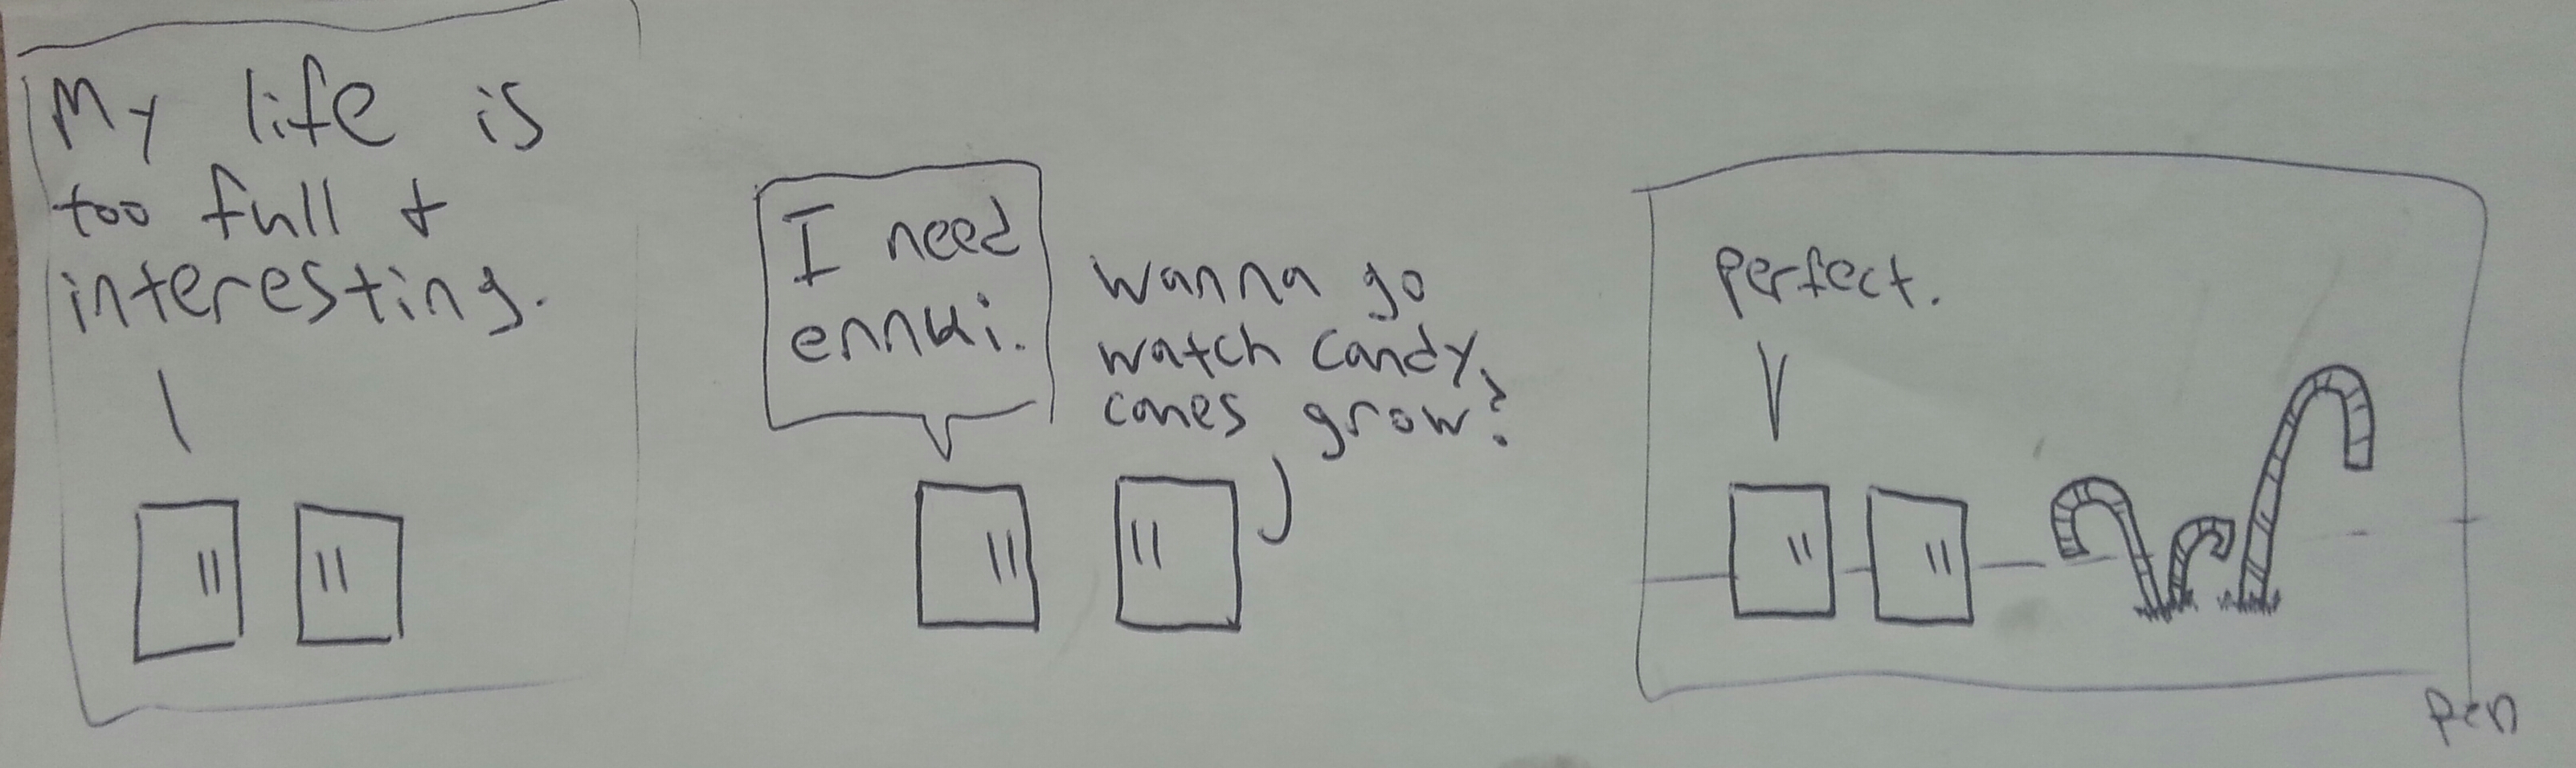 My life is
too full +
interesting.
I need
ennui.
wanna go
watch candy
canes grow?
perfect.
pen